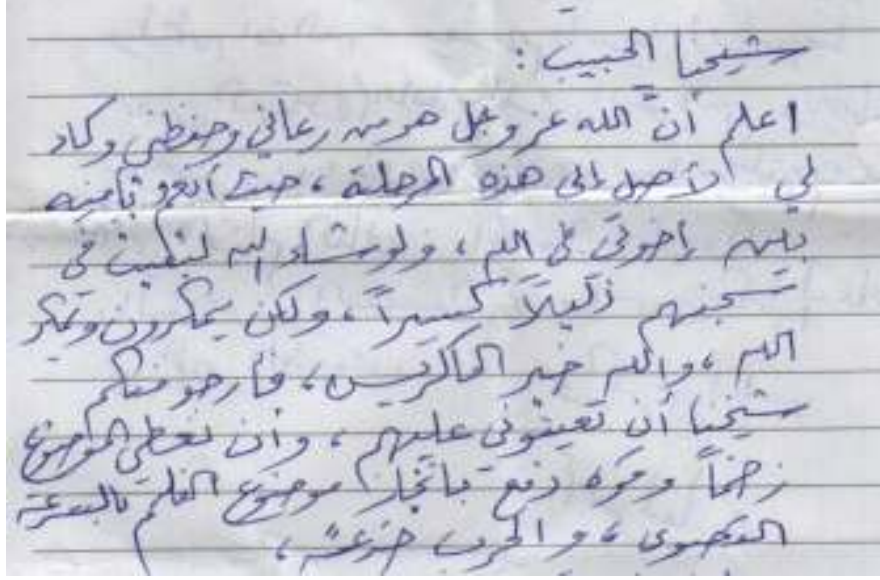 شيخنا الحبيب :
اعلم أنَّ الله عز وجل هو من رعاني وحفظني وكاد
لي لأصل إلى هذه المرحلة ، حيث أنعم ثانية
بين إخوتي في الله ، ولو شاء الله لبقيت في
سجنهم ذليلاً كسيراً ، ولكن يمكرون ويمكر
الله ، والله خير الماكرين ، فأرجو منكم
شيخنا أن تعينوني عليهم ، وأن نعطي الموضوع
زخماً وقوة دفع بإنجاز موضوع الفلم بالسرعة
القصوى ، والحرب خدعة ،